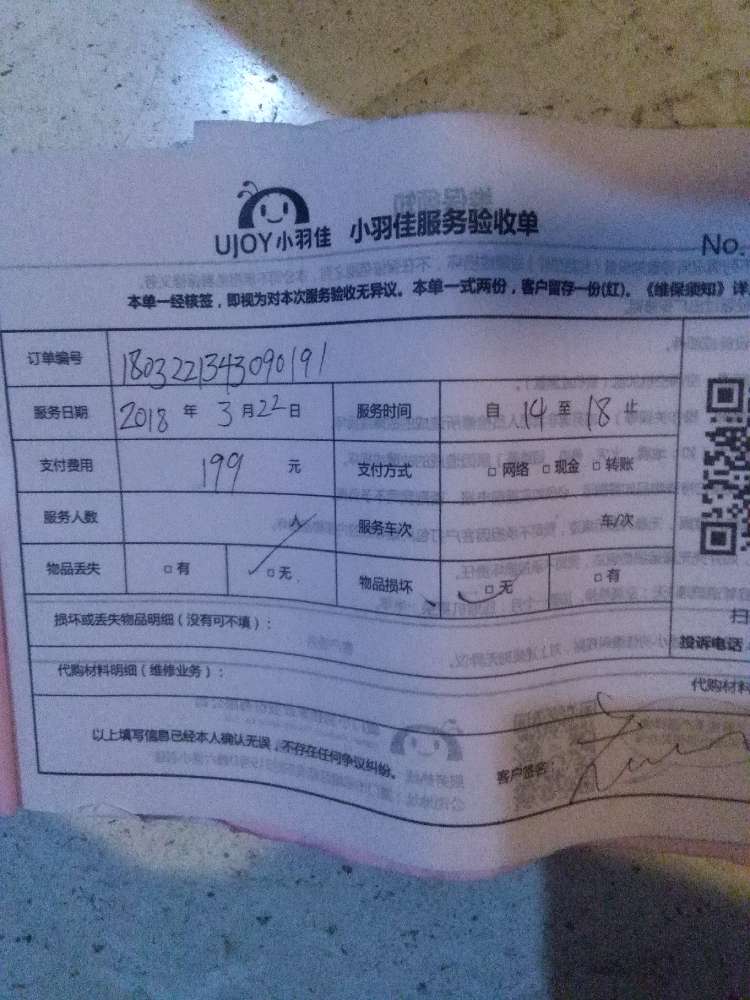 UJOY小羽佳 小羽佳服务验收单
No.
本单一经核签，即视为对本次服务验收无异议。本单一式两份，客户留存一份(红)。《维保须知》详
订单编号 1803221343090191
服务日期 2018 年 3 月 22 日 服务时间 自 14 至 18 止
支付费用 199 元 支付方式 □ 网络 □ 现金 □ 转账
服务人数 人 服务车次 车/次
物品丢失 □ 有 □ 无 物品损坏 □ 无 □ 有
损坏或丢失物品明细（没有可不填）：
扫
投诉电话
代购材料明细（维修业务）：
代购材料
以上填写信息已经本人确认无误，不存在任何争议纠纷。
客户签名：